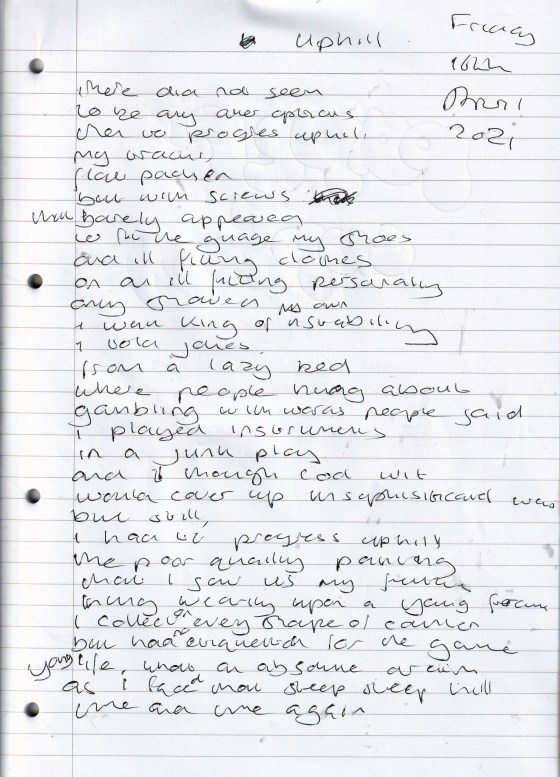 Uphill
Friday
16th
April
2021
there did not seem
to be any other options
than to progres uphill.
my tracks,
flat packed
but with screws
that barely appeared
to fit the guage my shoes
and ill fitting clothes
on an ill fitting personality
only shaved
my own
I was king of instability
I told jokes
from a lazy bed
where people hung about
gambling with words people said
I played instruments
in a junk play
and I though cod wit
would cover up unsophisticated
but still,
I had to progress uphill
the poor quality painting
that I saw as my future
hung wearily upon a young
I collect every shape of counter
but had no for the game
young life, what an absurd dream
as I faced that steep steep hill
time and time again